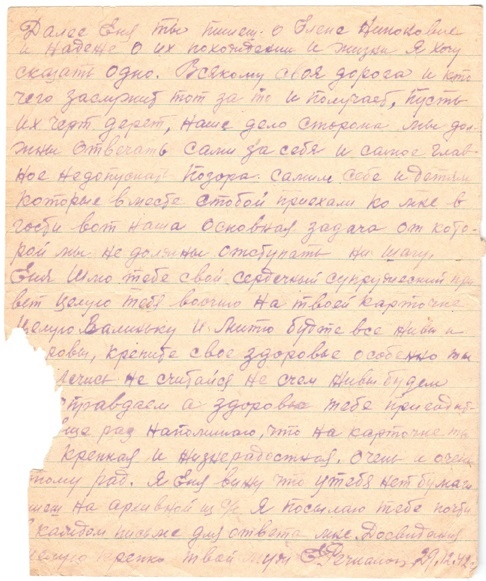 Далее Еня ты пишеш. о Елене Никоновне
и Надеже о их похождении и жизни я хочу
сказать одно. Всякому своя дорога и кто
чего заслужит тот за то и получает, пусть
их черт дерет, наше дело сторона мы дол-
жны отвечать сами за себя и самое глав-
ное недопускать позора самим себе и детям
которые вместе стобой приехали ко мне в
гости вот наша основная задача от кото-
рой мы не должны отступать ни шагу.
Еня Шлю тебе свой сердечный супружеский при
вет целую тебя на твоей карточке
целую Валиньку и Митю будте все живы и
ровы, крепите свое здоровье особенно ты
лечись не считайся не счем живы будем
справдаем а здоровье тебе
еще раз напоминаю, что на карточке ты
крепкая и жизнерадостная. Очень и очень
тому рад. Я Еня вижу что утебя нет бумаги
пишеш на архивной Я посылаю тебе почти
в каждом письме для ответа мне. Досвидания
целую крепко твой муж 29.12.42